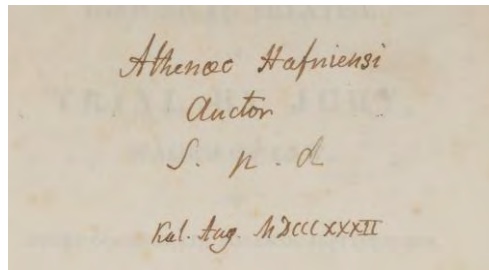 Athenæo Hafniensi
Auctor
S. p. d
Kal. Aug. MDCCCXXXII